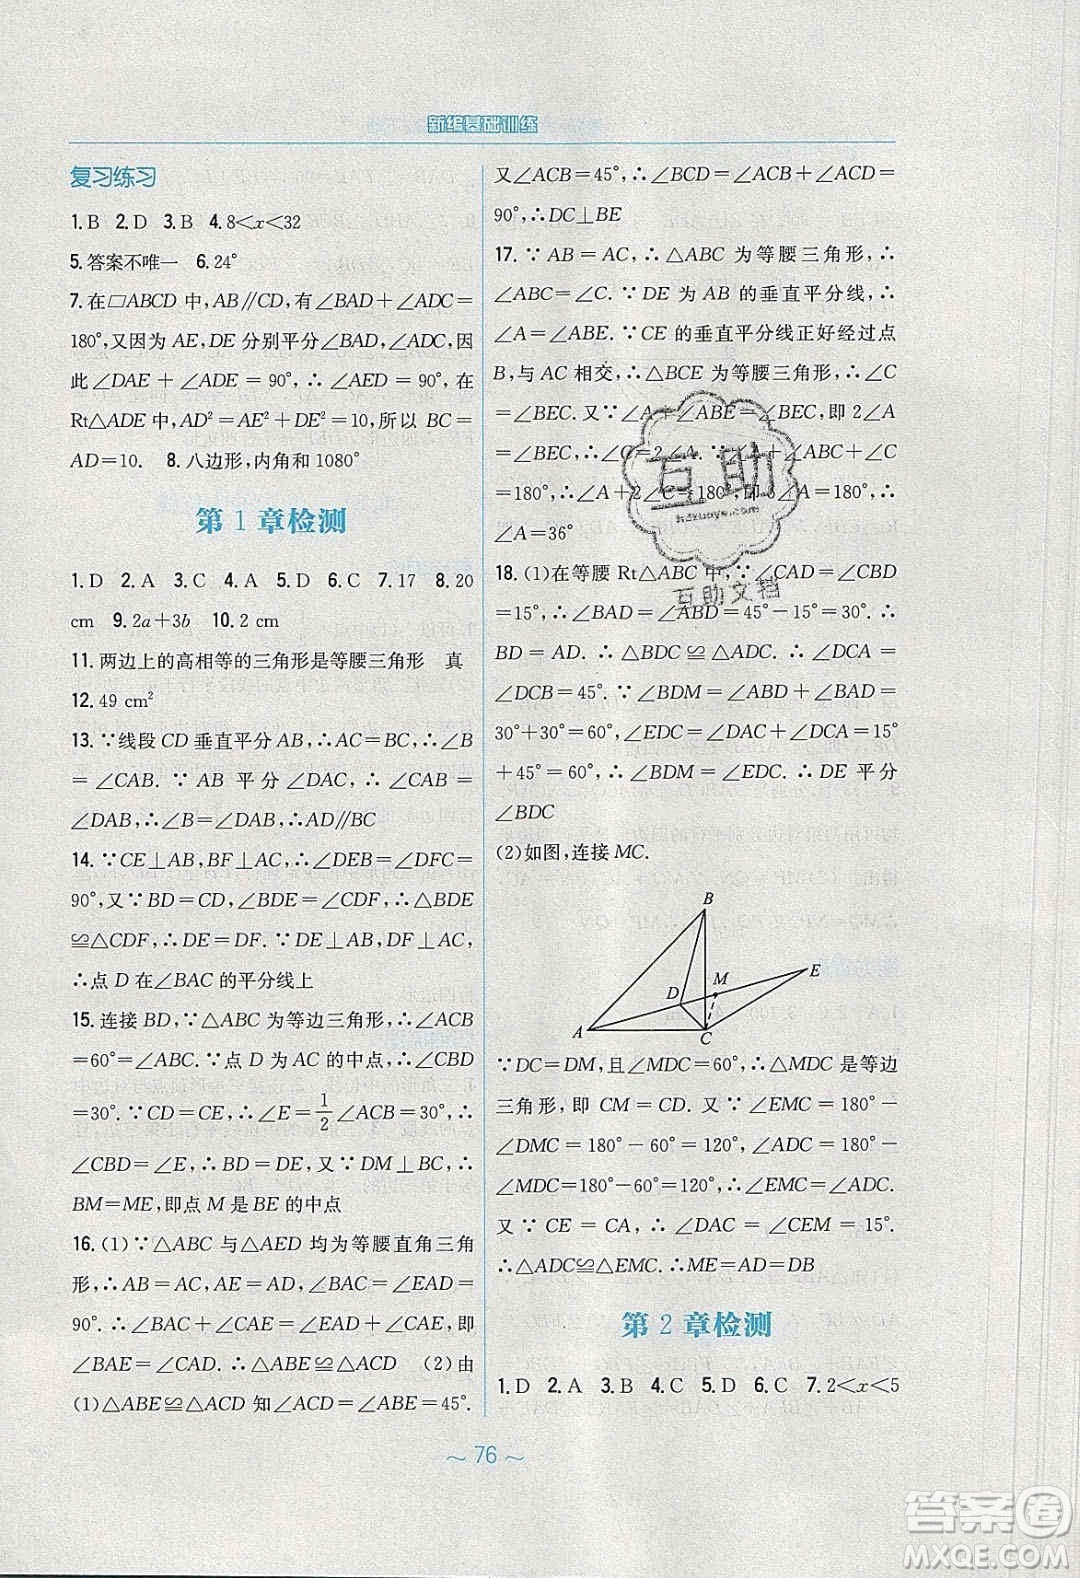 新编基础训练
复习练习
1. B 2. D 3. B 4. 8＜x＜32
5. 答案不唯一 6. 24°
7. 在□ABCD 中, AB∥CD, 有∠BAD+∠ADC=
180°, 又因为 AE, DE 分别平分∠BAD, ∠ADC, 因
此∠DAE+∠ADE=90°, ∴∠AED=90°, 在
Rt△ADE 中, AD²=AE²+DE²=10, 所以 BC=
AD=10. 8. 八边形, 内角和 1080°
第 1 章检测
1. D 2. A 3. C 4. A 5. D 6. C 7. 17 8. 20
cm 9. 2a+3b 10. 2 cm
11. 两边上的高相等的三角形是等腰三角形 真
12. 49 cm²
13. ∵线段 CD 垂直平分 AB, ∴AC=BC, ∴∠B
=∠CAB. ∵ AB 平分∠DAC, ∴∠CAB=
∠DAB, ∴∠B=∠DAB, ∴AD∥BC
14. ∵CE⊥AB, BF⊥AC, ∴∠DEB=∠DFC=
90°, 又∵BD=CD, ∠BDE=∠CDF, ∴△BDE
≌△CDF, ∴DE=DF. ∵DE⊥AB, DF⊥AC,
∴点 D 在∠BAC 的平分线上
15. 连接 BD, ∵△ABC 为等边三角形, ∴∠ACB
=60°=∠ABC ∵点 D 为 AC 的中点, ∴∠CBD
=30°. ∵CD=CE, ∴∠E=1/2∠ACB=30°, ∴
∠CBD=∠E, ∴BD=DE. 又∵DM⊥BC, ∴
BM=ME, 即点 M 是 BE 的中点
16. (1)∵△ABC 与△AED 均为等腰直角三角
形, ∴AB=AC, AE=AD, ∠BAC=∠EAD=
90°. ∴∠BAC+∠CAE=∠EAD+∠CAE, 即
∠BAE=∠CAD, ∴△ABE≌△ACD (2)由
(1)△ABE≌△ACD 知∠ACD=∠ABE=45°.
又∠ACB=45°, ∴∠BCD=∠ACB+∠ACD=
90°, ∴DC⊥BE
17. ∵ AB=AC, ∴△ABC 为等腰三角形, ∴
∠ABC=∠C. ∵DE 为 AB 的垂直平分线, ∴
∠A=∠ABE. ∵CE 的垂直平分线正好经过点
B, 与 AC 相交, ∴△BCE 为等腰三角形, ∴∠C
=∠BEC. 又∵∠A+∠ABE=∠BEC, 即 2∠A
=∠BEC, ∴∠C=2∠A. 又∵∠A+∠ABC+∠C
=180°, ∴∠A+2∠C=180°, 即 5∠A=180°, ∴
∠A=36°
18. (1)在等腰 Rt△ABC 中, ∵∠CAD=∠CBD
=15°, ∴∠BAD=∠ABD=45°-15°=30°. ∴
BD=AD. ∴△BDC≌△ADC. ∴∠DCA=
∠DCB=45°. ∵∠BDM=∠ABD+∠BAD=
30°+30°=60°, ∠EDC=∠DAC+∠DCA=15°
+45°=60°, ∴∠BDM=∠EDC. ∴DE 平分
∠BDC
(2)如图, 连接 MC.
B
M
E
D
A
C
∵DC=DM, 且∠MDC=60°, ∴△MDC 是等边
三角形, 即 CM=CD. 又∵∠EMC=180°-
∠DMC=180°-60°=120°, ∠ADC=180°-
∠MDC=180°-60°=120°, ∴∠EMC=∠ADC.
又∵CE=CA, ∴∠DAC=∠CEM=15°.
∴△ADC≌△EMC. ∴ME=AD=DB
第 2 章检测
1. D 2. A 3. B 4. C 5. D 6. C 7. 2＜x＜5
～76～
互助
互助文档
答案圈
MXQE.COM